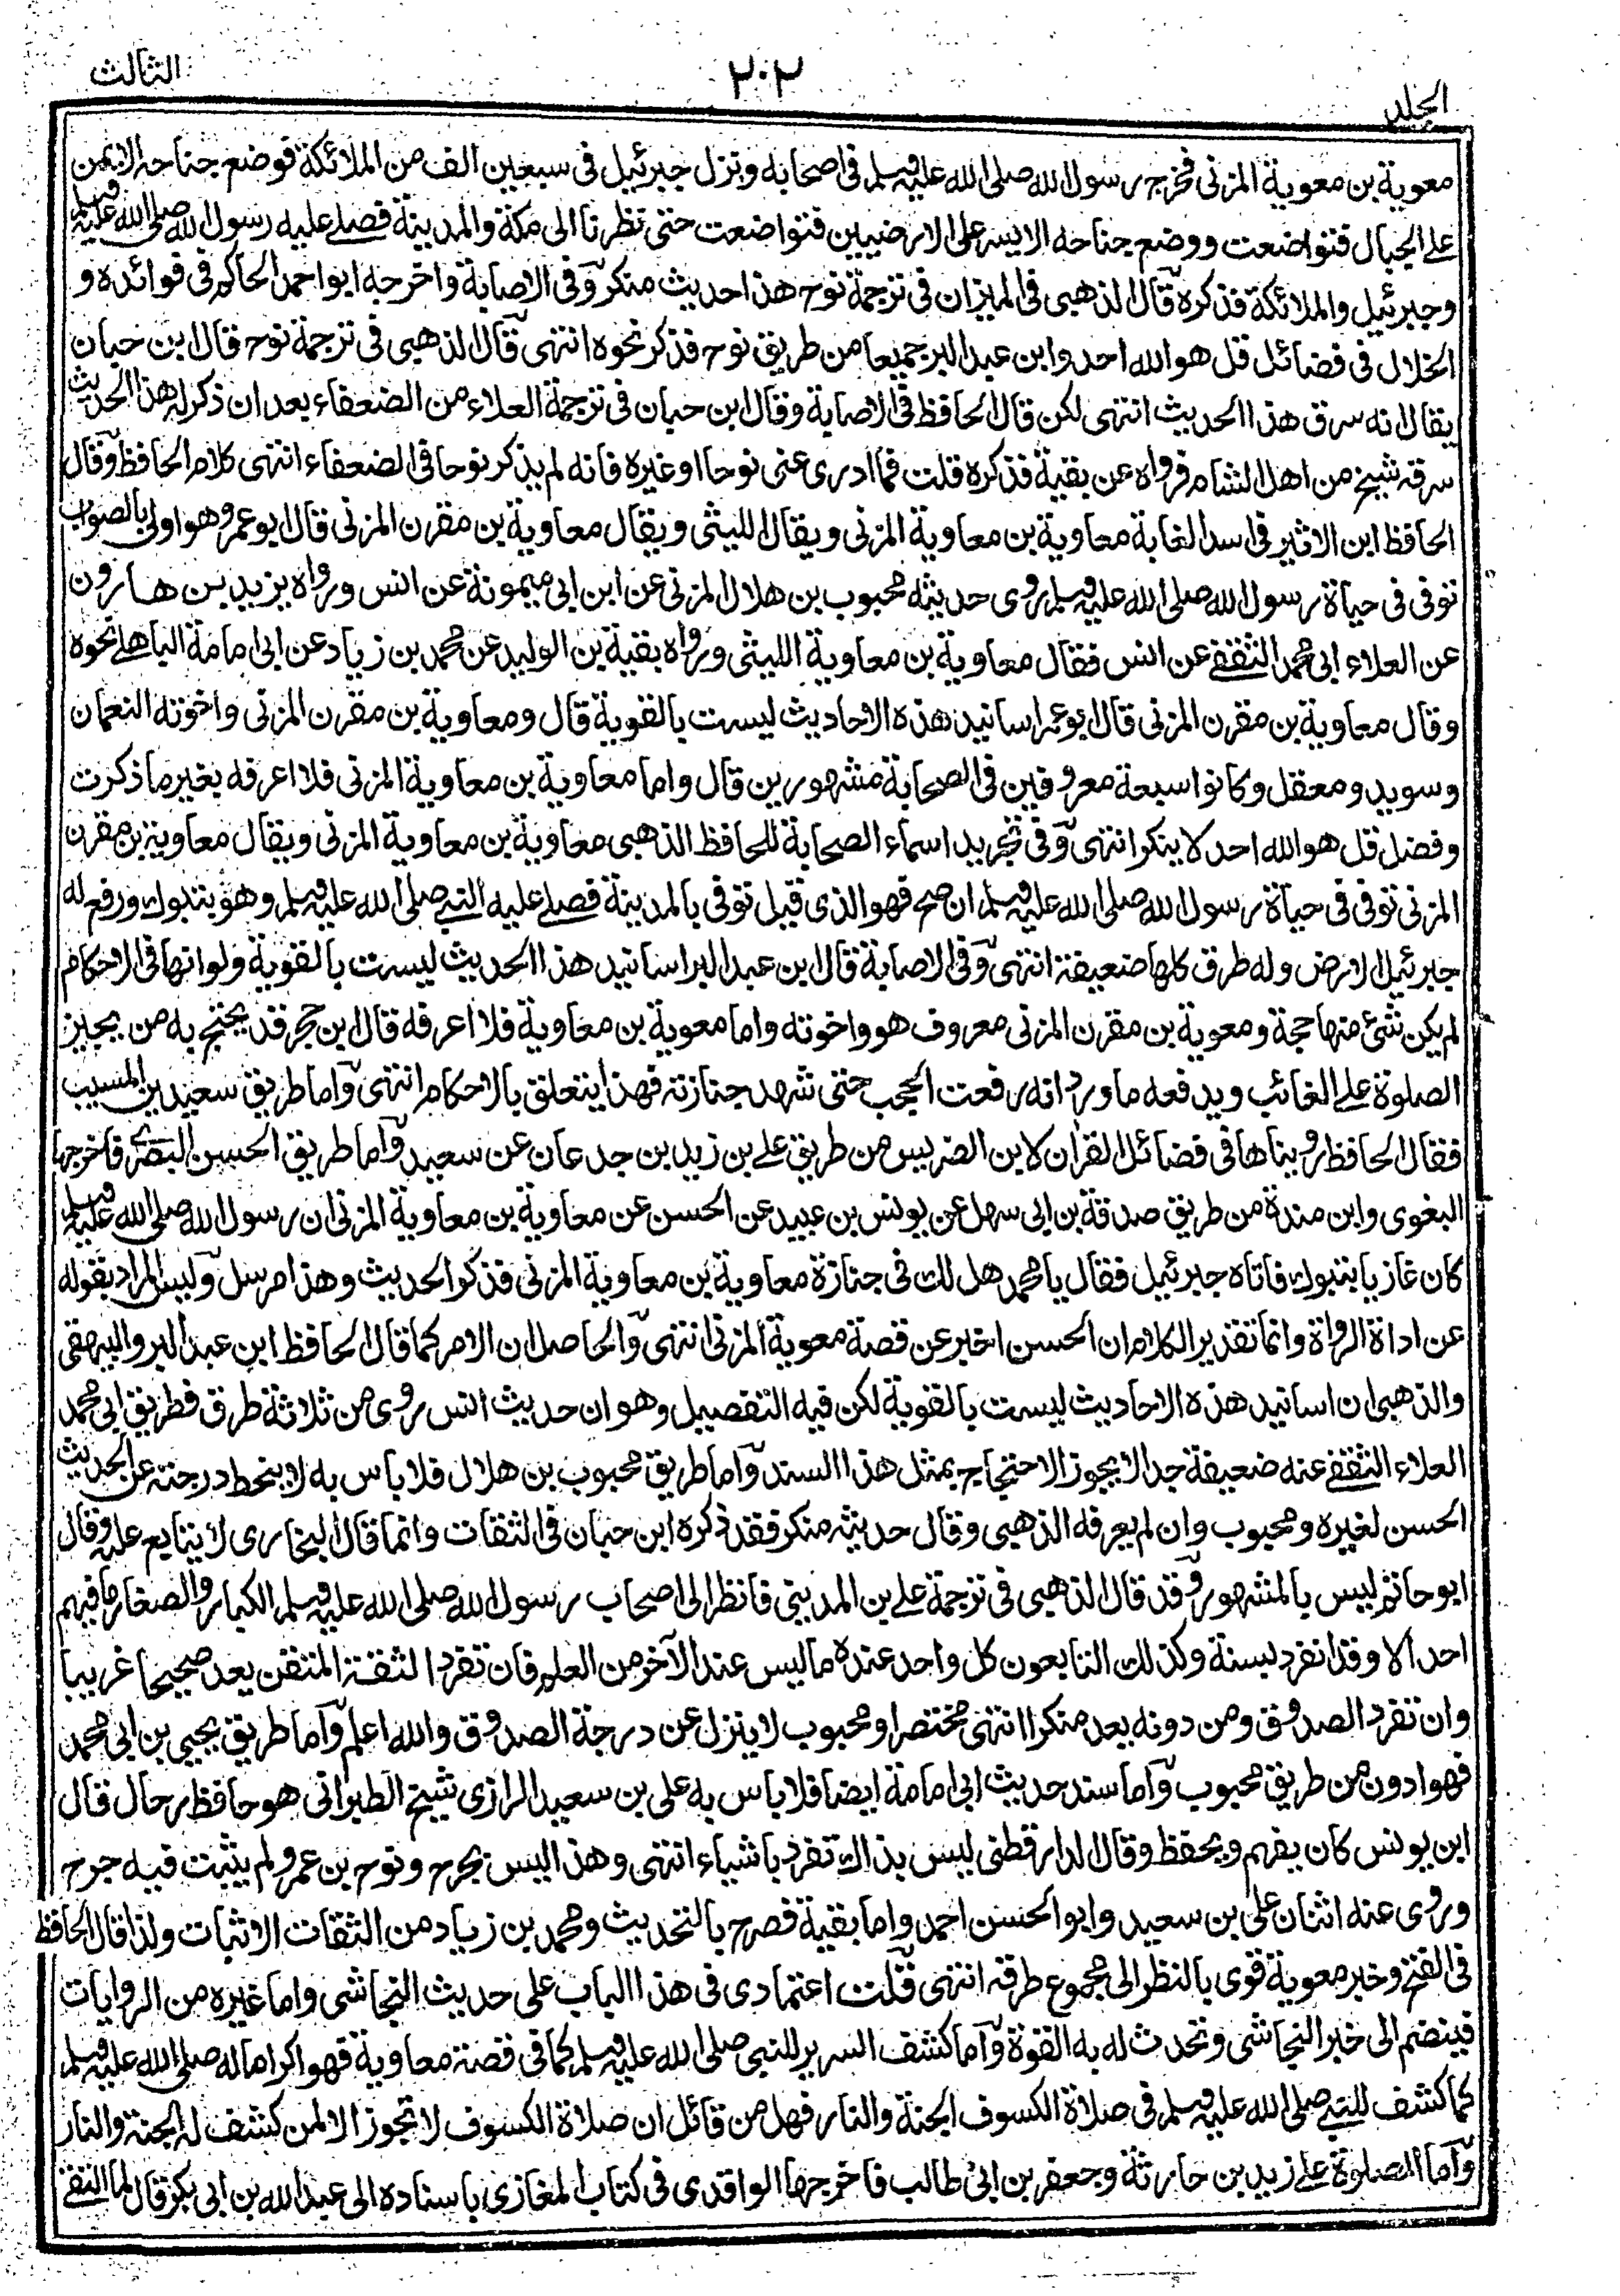 الجلد
٢٠٢
الثالث
معوية بن معوية المزنى فخرج رسول الله صلى الله عليه وسلم فى اصحابه ونزل جبرئيل فى سبعين الف من الملائكة فوضع جناحه الايمن
على الجبال فتواضعت ووضع جناحه الايسر على الارضيين فتواضعت حتى نظرنا الى مكة والمدينة فصلے عليه رسول الله صلى الله عليه وسلم
وجبرئيل والملائكة فذكره قال الذهبى فى الميزان فى ترجمة نوح هذا حديث منكر وفى الاصابة واخرجه ابو احمد الحاكم فى فوائده و
الخلال فى فضائل قل هو الله احد وابن عبد البر جميعا من طريق نوح فذكر نحوه انتهى قال الذهبى فى ترجمة نوح قال ابن حبان
يقال انه سرق هذا الحديث انتهى لكن قال الحافظ فى الاصابة وقال ابن حبان فى ترجمة العلاء من الضعفاء بعد ان ذكر له هذا الحديث
سرقه شيخ من اهل الشام فرواه عن بقية فذكره قلت فما ادرى عنى نوحا او غيره فانه لم يذكر نوحا فى الضعفاء انتهى كلام الحافظ وقال
الحافظ ابن الاثير فى اسد الغابة معاوية بن معاوية المزنى ويقال الليثى ويقال معاوية بن مقرن المزنى قال ابو عمر وهو اولى بالصواب
توفى فى حياة رسول الله صلى الله عليه وسلم روى حديثه محبوب بن هلال المزنى عن ابن ابى ميمونة عن انس ورواه يزيد بن هارون
عن العلاء ابى محمد الثقفے عن انس فقال معاوية بن معاوية الليثى ورواه بقية بن الوليد عن محمد بن زياد عن ابى امامة الباهلے نحوه
وقال معاوية بن مقرن المزنى قال ابو عمر اسانيد هذه الاحاديث ليست بالقوية قال ومعاوية بن مقرن المزنى واخوته النعمان
وسويد ومعقل وكانوا سبعة معروفين فى الصحابة مشهورين قال واما معاوية بن معاوية المزنى فلا اعرفه بغير ما ذكرت
وفضل قل هو الله احد لا ينكر انتهى وفى تجريد اسماء الصحابة للحافظ الذهبى معاوية بن معاوية المزنى ويقال معاوية بن مقرن
المزنى توفى فى حياة رسول الله صلى الله عليه وسلم ان صح فهو الذى قيل توفى بالمدينة فصلے عليه النبے صلى الله عليه وسلم وهو بتبوك ورفع له
جبرئيل الارض وله طرق كلها ضعيفة انتهى وفى الاصابة قال ابن عبد البر اسانيد هذا الحديث ليست بالقوية ولو انها فى الاحكام
لم يكن شئ منها حجة ومعوية بن مقرن المزنى معروف هو واخوته واما معوية بن معاوية فلا اعرفه قال ابن حجر قد يحتج به من يجيز
الصلوة على الغائب ويدفعه ما ورد انه رفعت الحجب حتى شهد جنازته فهذا يتعلق بالاحكام انتهى واما طريق سعيد بن المسيب
فقال الحافظ رويناها فى فضائل القرأن لابن الضريس من طريق على بن زيد بن جدعان عن سعيد واما طريق الحسن البصرے فاخرجها
البغوى وابن مندة من طريق صدقة بن ابى سهل عن يونس بن عبيد عن الحسن عن معاوية بن معاوية المزنى ان رسول الله صلى الله عليه وسلم
كان غازيا بتبوك فاتاه جبرئيل فقال يا محمد هل لك فى جنازة معاوية بن معاوية المزنى فذكر الحديث وهذا مرسل وليس المراد بقوله
عن اداة الرواة وانما تقدير الكلام ان الحسن اخبر عن قصة معوية المزنى انتهى والحاصل ان الامر كما قال الحافظ ابن عبد البر والبيهقى
والذهبى ان اسانيد هذه الاحاديث ليست بالقوية لكن فيه التفصيل وهو ان حديث انس روى من ثلاثة طرق فطريق ابى محمد
العلاء الثقفے عنه ضعيفة جدا لا يجوز الاحتجاج بمثل هذا السند واما طريق محبوب بن هلال فلا باس به لا ينحط درجته عن الحديث
الحسن لغيره ومحبوب وان لم يعرفه الذهبى وقال حديثه منكر فقد ذكره ابن حبان فى الثقات وانما قال البخارى لا يتابع عليه وقال
ابو حاتم ليس بالمشهور وقد قال الذهبى فى ترجمة على بن المدينى فانظر الى اصحاب رسول الله صلى الله عليه وسلم الكبار والصغار ما فيهم
احد الا وقد انفرد بسنة وكذلك التابعون كل واحد عنده ما ليس عند الآخر من العلم فان تفرد الثقة المتقن يعد صحيحا غريبا
وان تفرد الصدوق ومن دونه يعد منكرا انتهى مختصرا ومحبوب لا ينزل عن درجة الصدوق والله اعلم واما طريق يحيى بن ابى محمد
فهو ادون من طريق محبوب واما سند حديث ابى امامة ايضا فلا باس به على بن سعيد الرازى شيخ الطبرانى هو حافظ رحال قال
ابن يونس كان يفهم ويحفظ وقال الدارقطنى ليس بذاك تفرد باشياء انتهى وهذا ليس بجرح ونوح بن عمرو لم يثبت فيه جرح
وروى عنه اثنان على بن سعيد وابو الحسن احمد واما بقية فصرح بالتحديث ومحمد بن زياد من الثقات الاثبات ولذا قال الحافظ
فى الفتح وخبر معوية قوى بالنظر الى مجموع طرقه انتهى قلت اعتمادى فى هذا الباب على حديث النجاشى واما غيره من الروايات
فينضم الى خبر النجاشى وتحدث له به القوة واما كشف السرير للنبى صلى الله عليه وسلم كما فى قصة معاوية فهو اكراما له صلى الله عليه وسلم
كما كشف للنبے صلى الله عليه وسلم فى صلاة الكسوف الجنة والنار فهل من قائل ان صلاة الكسوف لا تجوز الا لمن كشف له الجنة والنار
واما الصلوة على زيد بن حارثة وجعفر بن ابى طالب فاخرجها الواقدى فى كتاب المغازى باسناده الى عبد الله بن ابى بكر قال لما التقے